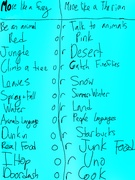 More Like a Furry | More Like a Thrian
Be an animal o r Talk to animals
Red o r Pink
Jungle o r Desert
Climb a tree o r Catch Fireflies
Leaves o r Snow
Spring + Fall o r Summer + Winter
Water o r Land
Animals language o r People languages
Dunkin o r Starbucks
Real Food o r Junk Food
IHop o r Uno
Doordash o r Cook